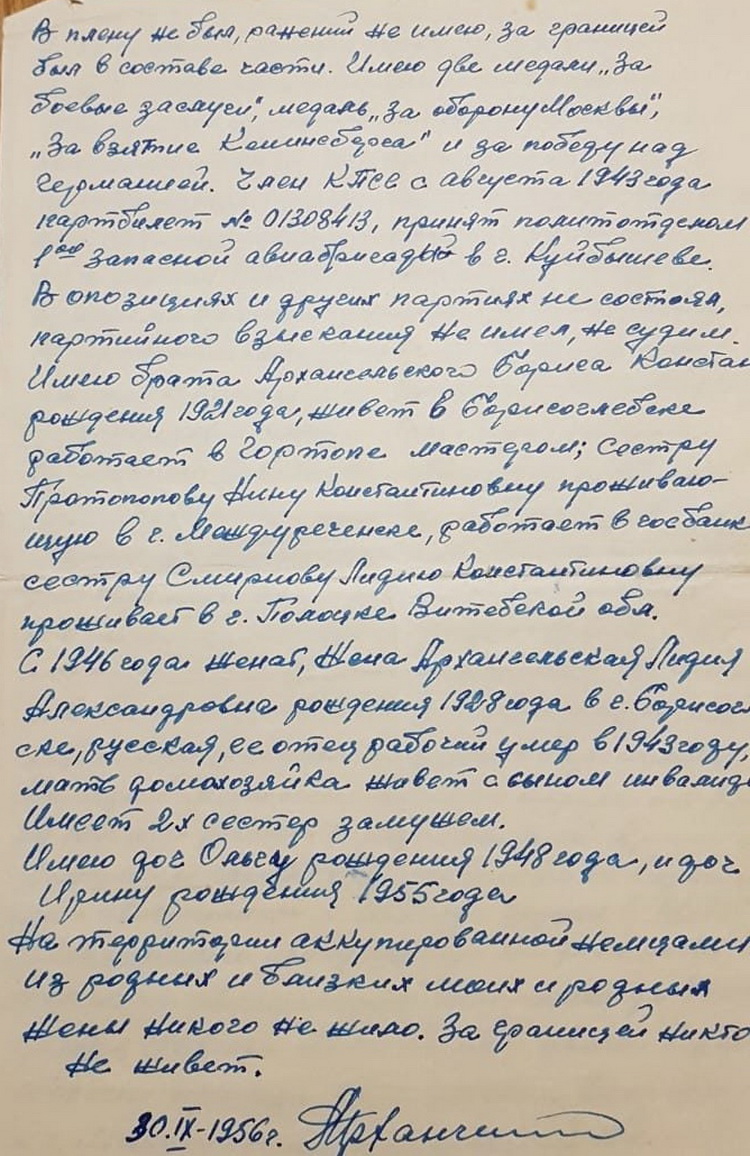 В плену не был, ранений не имею, за границей
был в составе части. Имею две медали „За
боевые заслуги", медаль „За оборону Москвы",
„За взятие Кенинсберга" и за победу над
Германией. Член КПСС с августа 1943 года
партбилет № 01308413, принят политотделом
1ой запасной авиабригады в г. Куйбышеве.
В опозициях и других партиях не состоял,
партийного взыскания не имел, не судим.
Имею брата Архангельского Бориса Констан
рождения 1921 года, живет в Борисоглебске
работает в Гортопе мастером; сестру
Протопопову Нину Константиновну проживаю-
щую в г. Междуреченске, работает в госбанк
сестру Смирнову Лидию Константиновну
проживает в г. Полоцке Витебской обл.
С 1946 года женат, жена Архангельская Лидия
Александровна рождения 1928 года в г. Борисогл
ске, русская, ее отец рабочий умер в 1943 году,
мать домохозяйка живет с сыном инвалид
Имеет 2х сестер замужем.
Имею доч Ольгу рождения 1948 года, и доч
Ирину рождения 1955 года
На территории аккупированной немцами
из родных и близких моих и родных
жены никого не жило. За границей никто
не живет.
30.IX-1956 г.